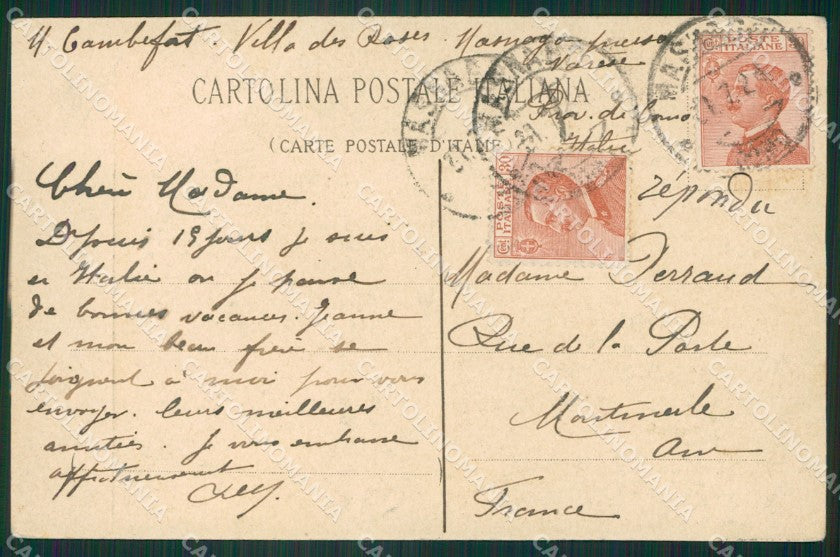 M Cambefort. Villa des Roses. Masnago presso
Varese
CARTOLINA POSTALE ITALIANA
Prov. di Como
(CARTE POSTALE D'ITALIE)
Italie
Chère Madame.
Depuis 15 jours je suis
en Italie où je passe
de bonnes vacances. Jeanne
et mon beau frère se
joignent à moi pour vous
envoyer leurs meilleures
amitiés. Je vous embrasse
affectueusement
répondu
Madame Perraud
Rue de la Poste
Montmerle
Ain
France
POSTE
ITALIANE
POSTE
ITALIANE
MASNAGO
CARTOLINOMANIA